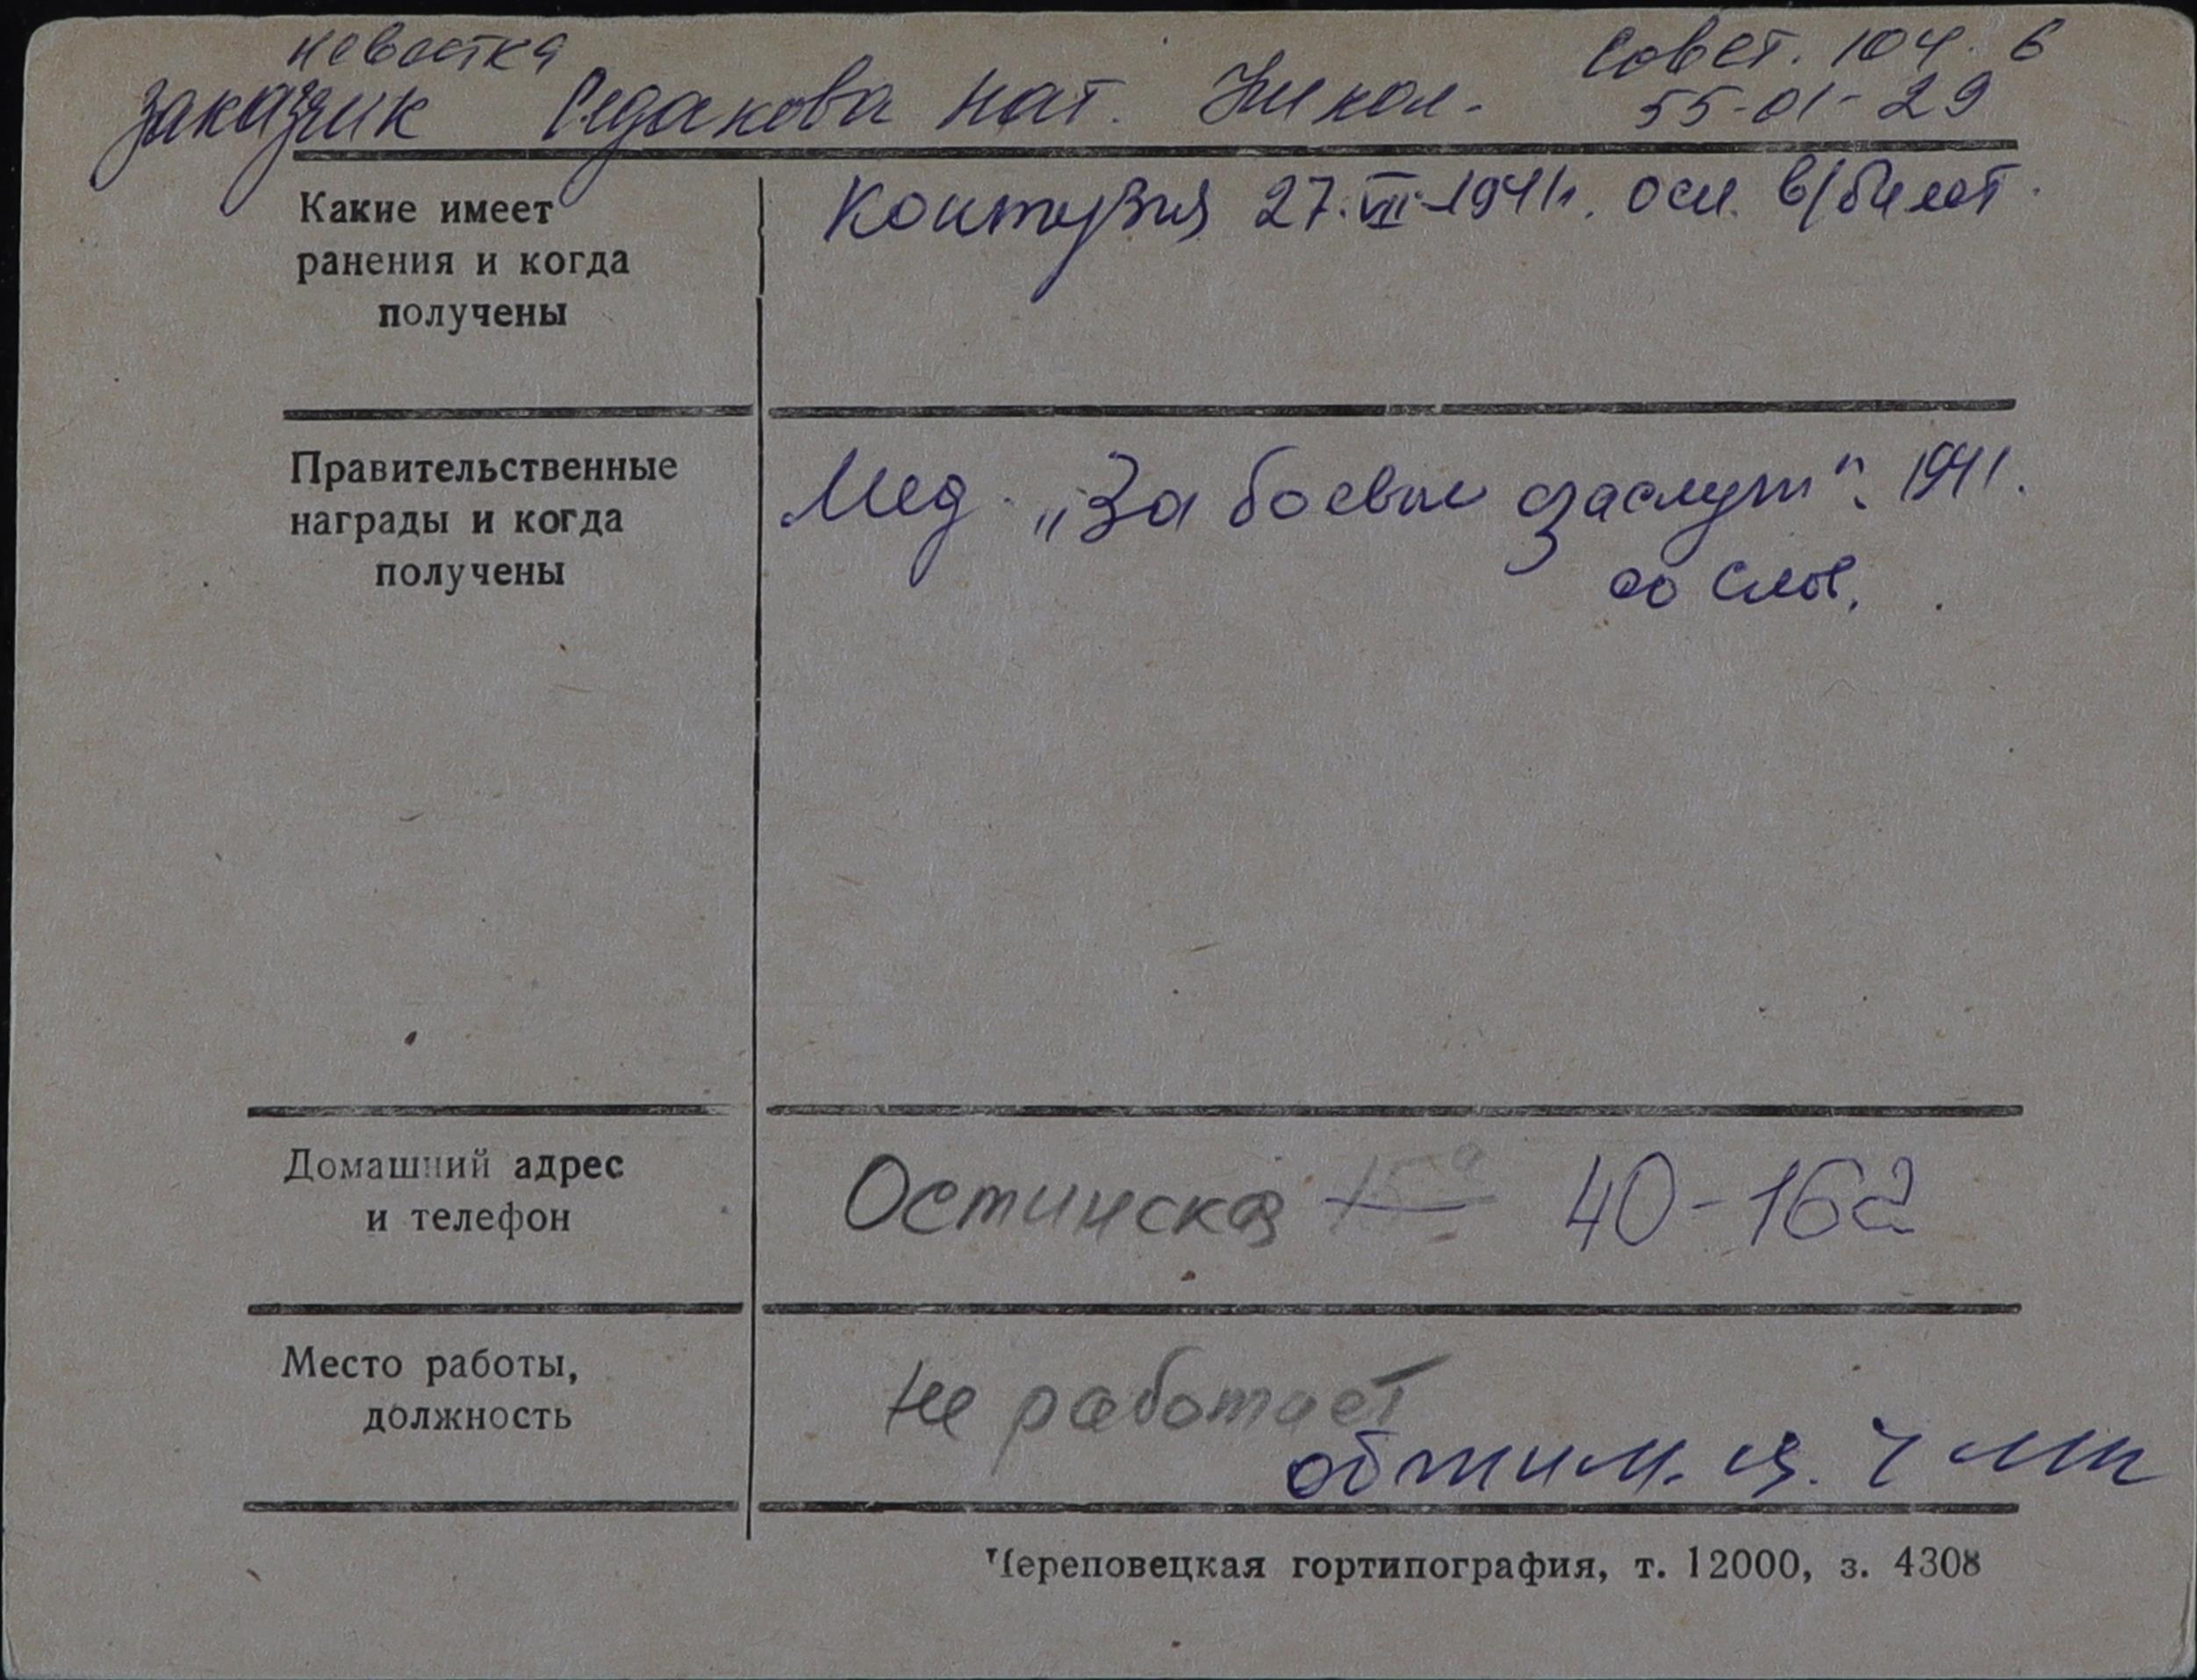 невестка
Совет. 104. 6
заказчик Седакова Нат. Никол.
55-01-29
Какие имеет
ранения и когда
получены
Контузия 27.VII-1941г. осн. в/билет.
Правительственные
награды и когда
получены
Мед. „За боевые заслуги“. 1941.
со слов.
Домашний адрес
и телефон
Остинская 40-162
Место работы,
должность
не работает
обжим. ц. ЧМЗ
Череповецкая гортипография, т. 12000, з. 4308